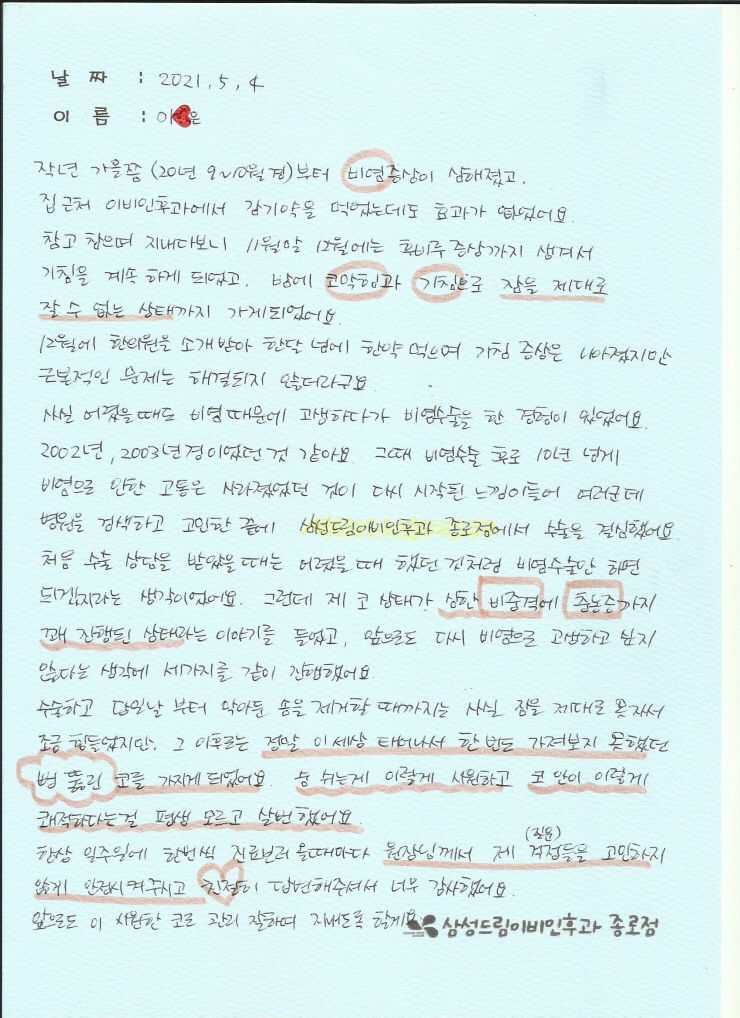 날 짜 : 2021. 5. 4
이 름 : 이 은
작년 가을쯤 (20년 9~10월경)부터 비염증상이 심해졌고,
집 근처 이비인후과에서 감기약을 먹었는데도 효과가 없었어요.
참고 참으며 지내다보니 11월말 12월에는 후비루 증상까지 생겨서
기침을 계속 하게 되었고, 밤에 코막힘과 기침으로 잠을 제대로
잘 수 없는 상태까지 가게되었어요.
12월에 한의원을 소개받아 한달 넘에 한약 먹으며 기침 증상은 나아졌지만
근본적인 문제는 해결되지 않더라구요.
사실 어렸을때도 비염때문에 고생하다가 비염수술을 한 경험이 있었어요.
2002년, 2003년경이었던 것 같아요. 그때 비염수술 후로 10년 넘게
비염으로 인한 고통은 사라졌었던 것이 다시 시작된 느낌이들어 여러군데
병원을 검색하고 고민한 끝에 삼성드림이비인후과 종로점에서 수술을 결심했어요.
처음 수술 상담을 받았을 때는 어렸을 때 했던 것처럼 비염수술만 하면
되겠지라는 생각이었어요. 그런데 제 코 상태가 심한 비중격에 축농증까지
꽤 진행된 상태라는 이야기를 들었고, 앞으로도 다시 비염으로 고생하고 싶지
않다는 생각에 세가지를 같이 진행했어요.
수술하고 당일날 부터 막아둔 솜을 제거할 때까지는 사실 잠을 제대로 못자서
조금 힘들었지만, 그 이후로는 정말 이 세상 태어나서 한 번도 가져보지 못했던
뻥 뚫린 코를 가지게 되었어요. 숨 쉬는게 이렇게 시원하고 코 안이 이렇게
쾌적하다는걸 평생 모르고 살뻔 했어요.
항상 일주일에 한번씩 진료보러 올때마다 원장님께서 제 걱정들을 고민하지
(질문)
않게 안심시켜주시고 친절히 답변해주셔서 너무 감사했어요.
앞으로도 이 시원한 코로 관리 잘하며 지내도록 할게요.
삼성드림이비인후과 종로점